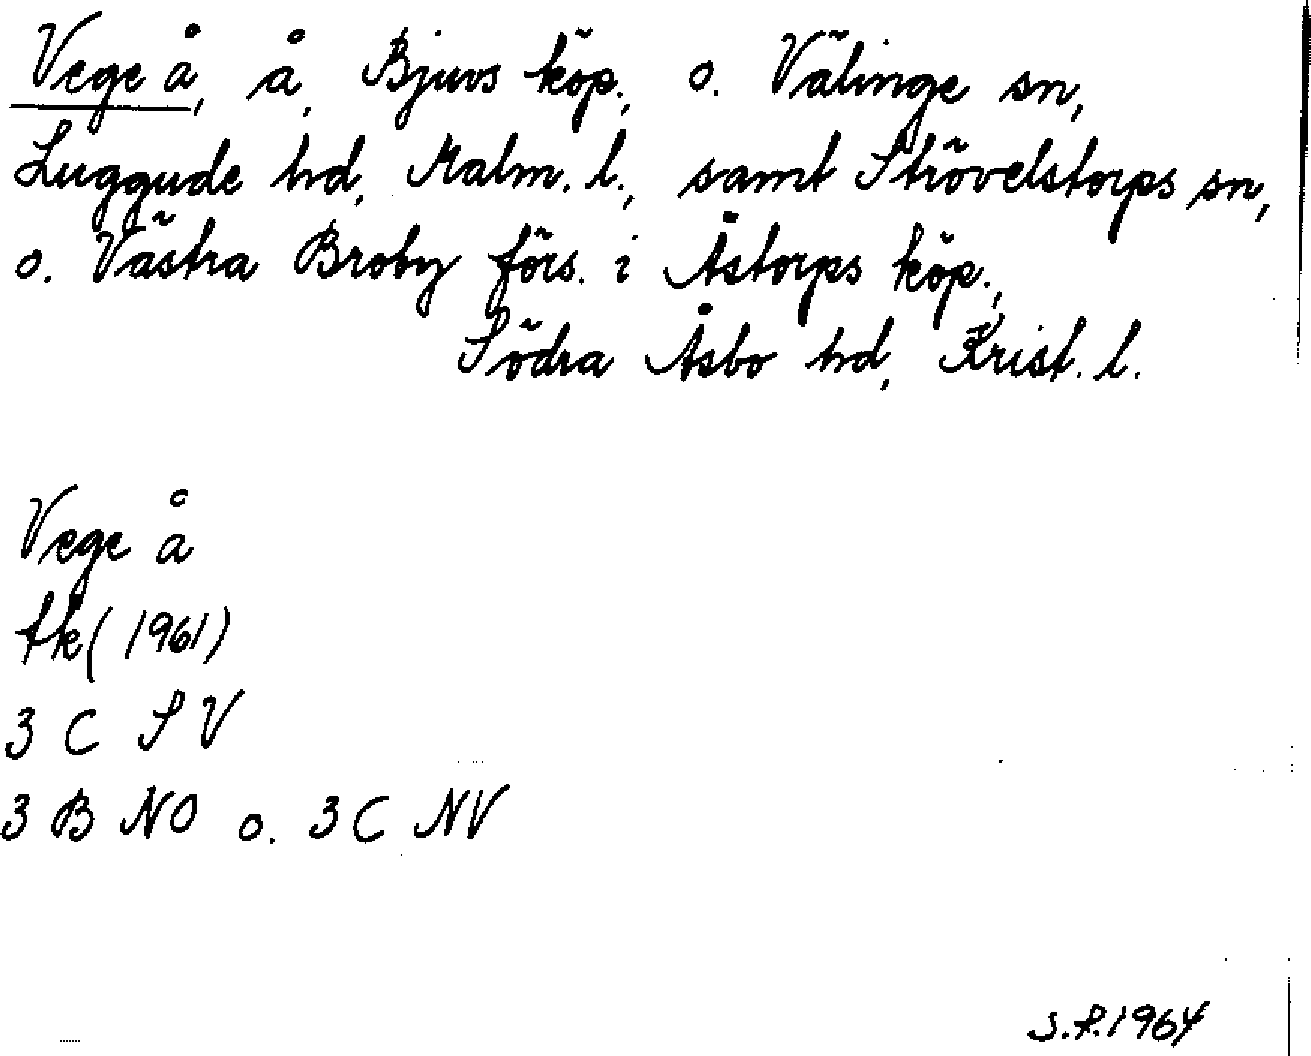 Vege å, å, Bjuvs köp., o. Välinge sn,
Luggude hd, Malm. l., samt Strövelstorps sn,
o. Västra Broby förs. i Åstorps köp.,
Södra Åsbo hd, Krist. l.
Vege å
tk (1961)
3 C SV
3 B NO o. 3 C NV
S.F. 1964